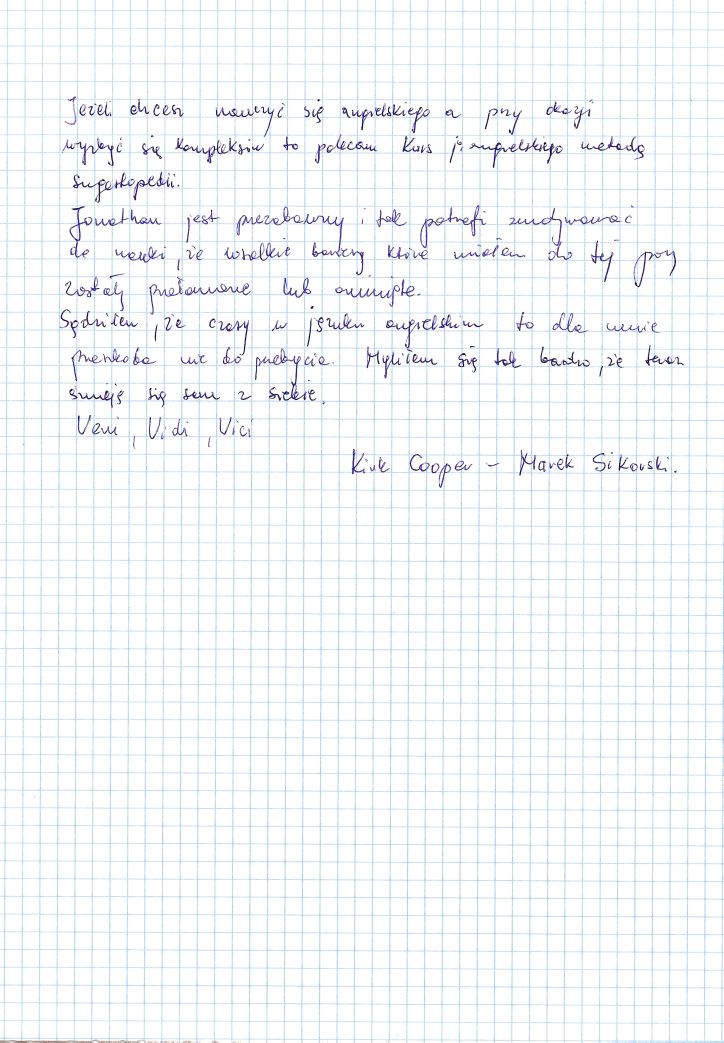 Jeżeli chcesz nauczyć się angielskiego a przy okazji
wyzbyć się kompleksów to polecam kurs j. angielskiego metodą
Sugestopedii.
Jonathan jest przezabawny i tak potrafi zmotywować
do nauki, że wszelkie bariery które miałem do tej pory
zostały przełamane lub ominięte.
Sądziłem, że czasy w języku angielskim to dla mnie
przeszkoda nie do przebycia. Myliłem się tak bardzo, że teraz
śmieję się sam z siebie.
Veni, Vidi, Vici
Kirk Cooper – Marek Sikorski.